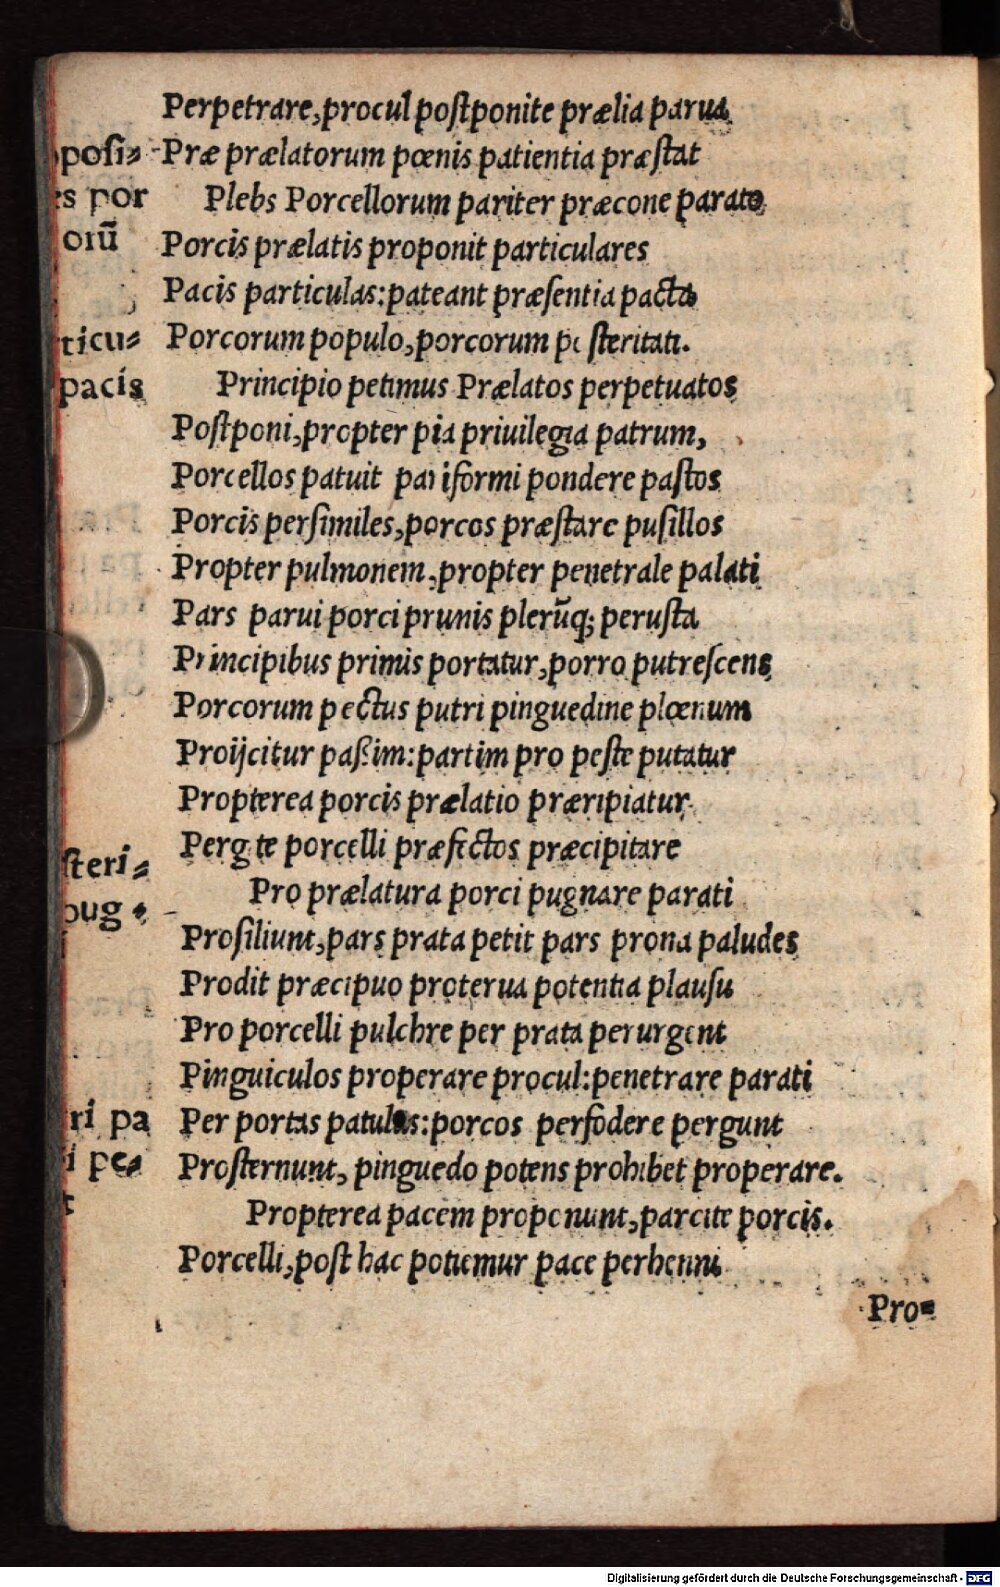 Perpetrare, procul postponite prælia parua
posi-
Præ prælatorum pœnis patientia præstat
s por
Plebs Porcellorum pariter præcone parato
oiū
Porcis prælatis proponit particulares
Pacis particulas: pateant præsentia pacta
ticu-
Porcorum populo, porcorum posteritati.
pacis
Principio petimus Prælatos perpetuatos
Postponi, propter pia priuilegia patrum,
Porcellos patuit pariformi pondere pastos
Porcis persimiles, porcos præstare pusillos
Propter pulmonem, propter penetrale palati
Pars parui porci prunis plerūq; perusta
Principibus primis portatur, porro putrescens
Porcorum pectus putri pinguedine plœnum
Proijcitur paßim: partim pro peste putatur
Propterea porcis prælatio præripiatur.
Pergite porcelli præfectos præcipitare
steri-
Pro prælatura porci pugnare parati
pug
Prosiliunt, pars prata petit pars prona paludes
Prodit præcipuo proterua potentia plausu
Pro porcelli pulchre per prata perurgent
Pinguiculos properare procul: penetrare parati
ri pa
Per portas patulas: porcos perfodere pergunt
i pe-
Prosternunt, pinguedo potens prohibet properare.
t
Propterea pacem proponunt, parcite porcis.
Porcelli, post hac potiemur pace perhenni
Pro-
Digitalisierung gefördert durch die Deutsche Forschungsgemeinschaft - DFG